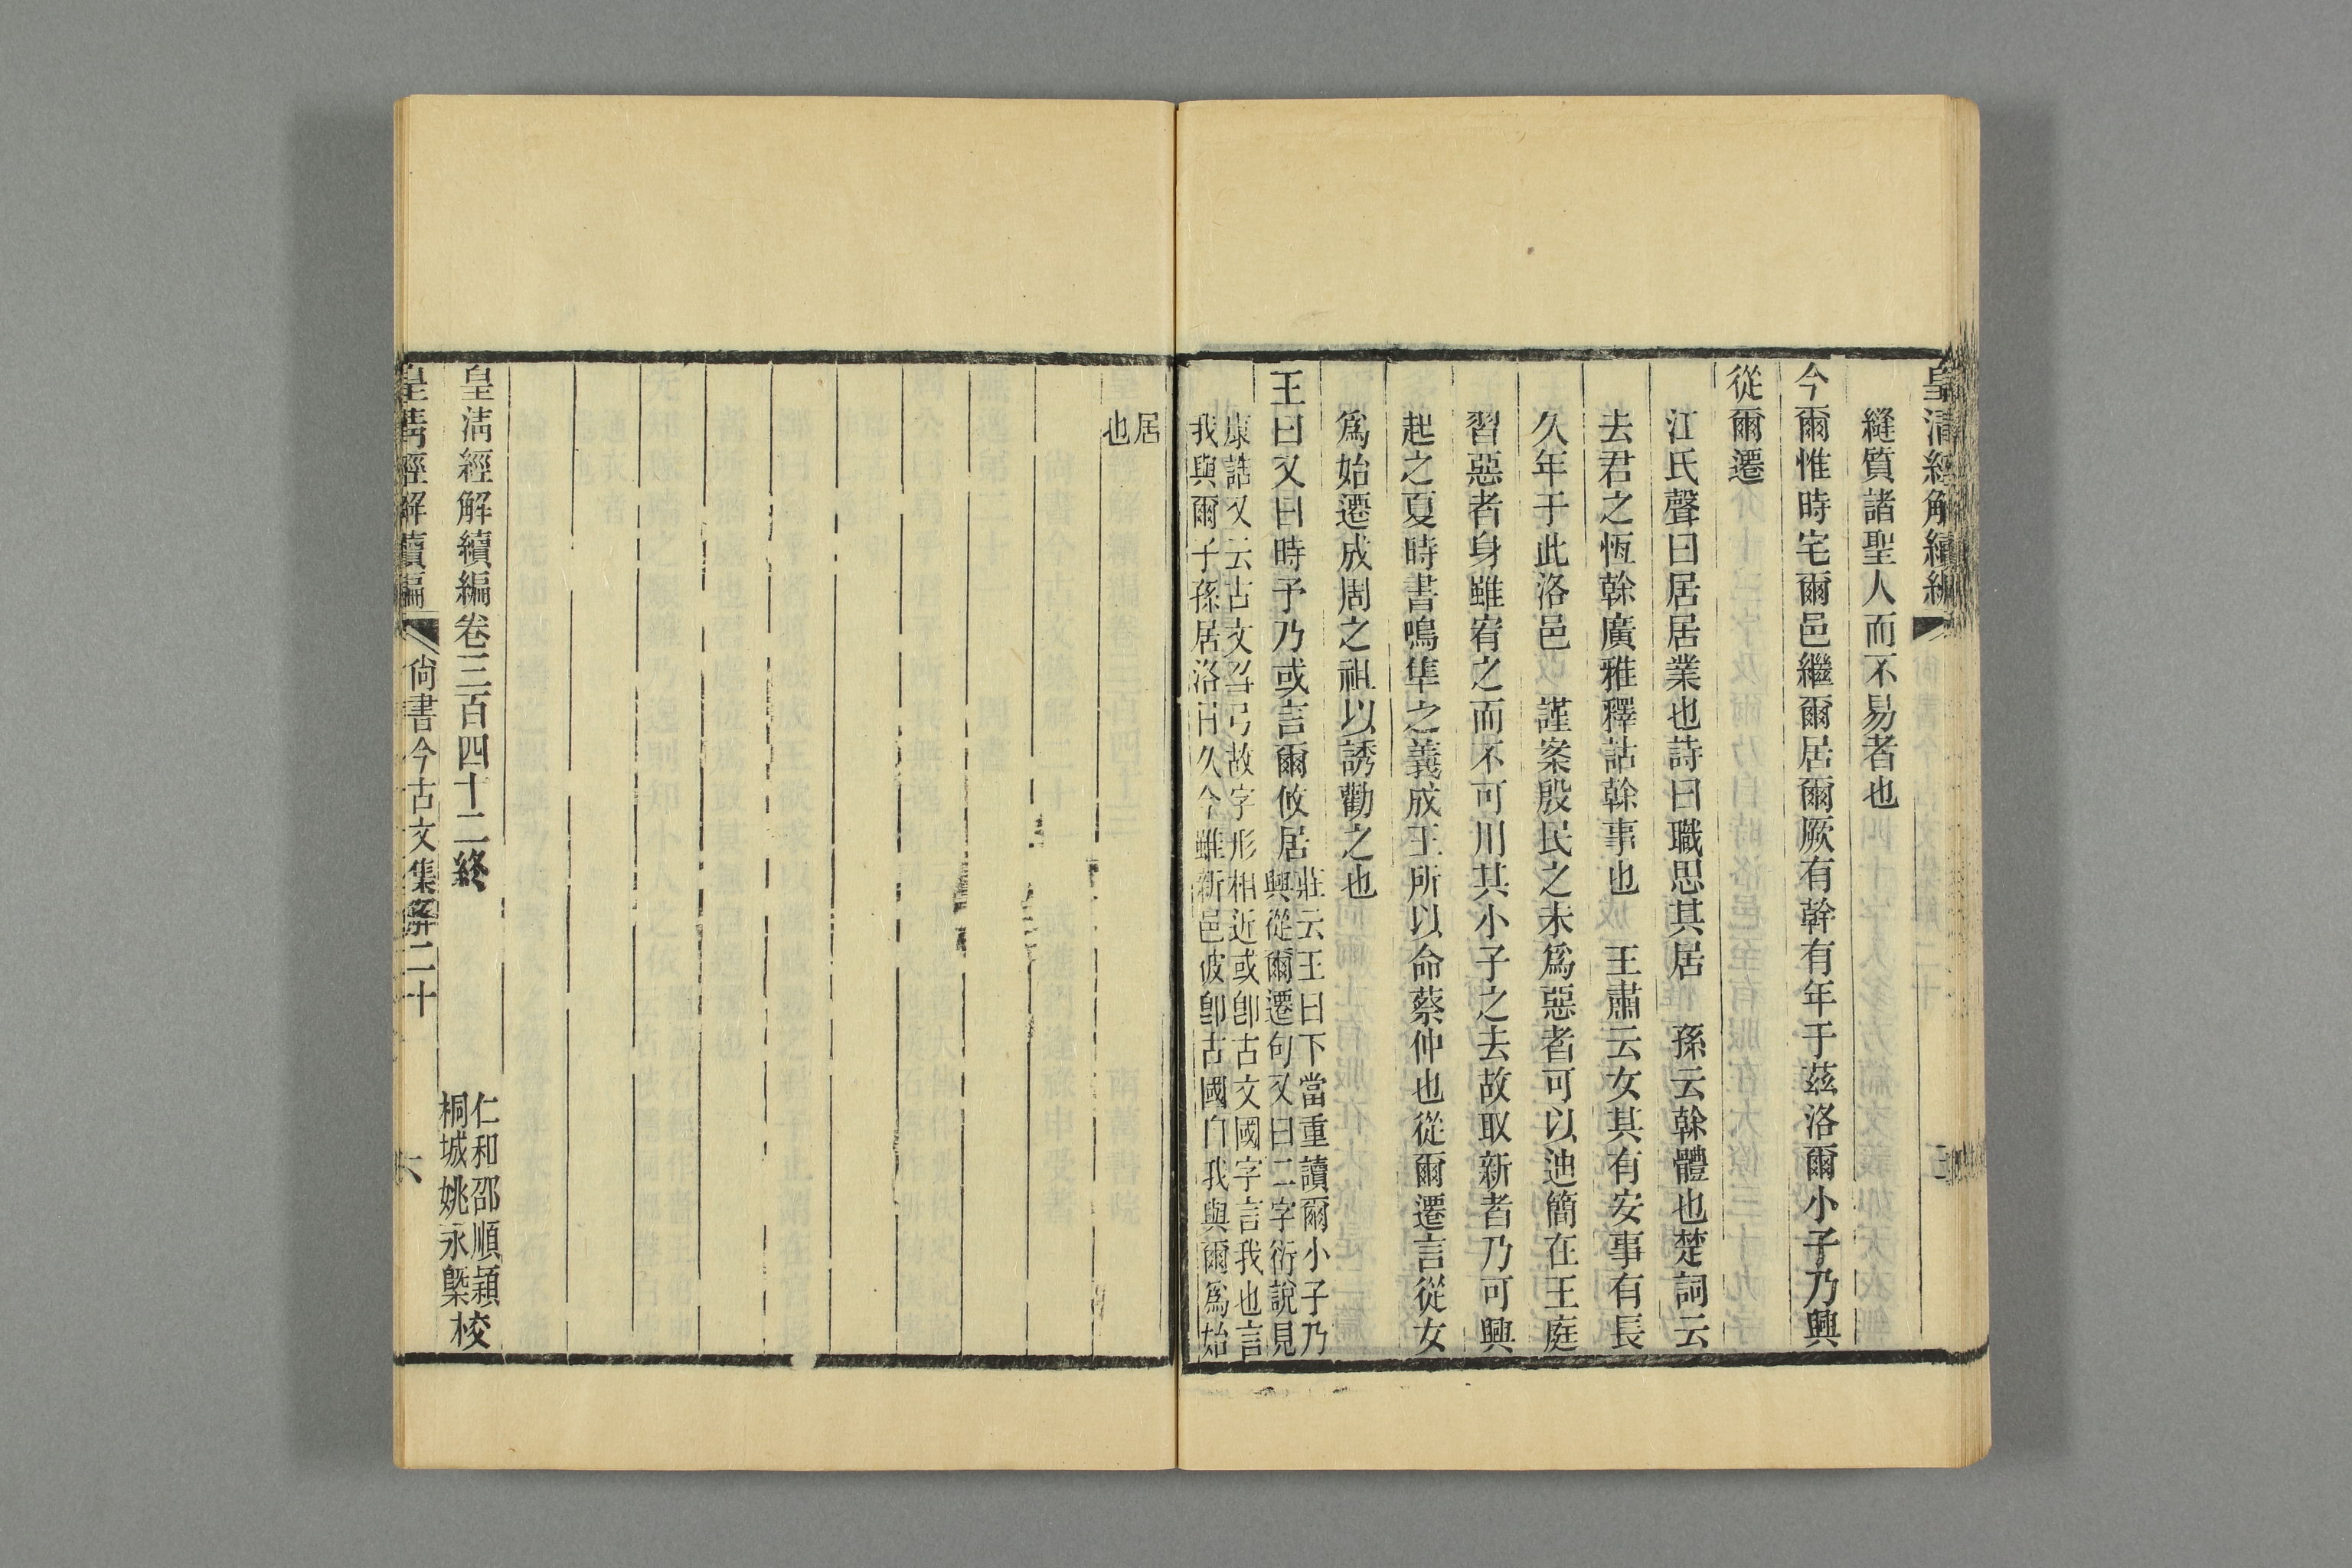 皇清經解續編
縫質諸聖人而不易者也
今爾惟時宅爾邑繼爾居爾厥有幹有年于茲洛爾小子乃興
從爾遷
江氏聲曰居居業也詩曰職思其居　孫云榦體也楚詞云
去君之恆榦廣雅釋詁榦事也　王肅云女其有安事有長
久年于此洛邑　謹案殷民之未爲惡者可以迪簡在王庭
習惡者身雖宥之而不可川其小子之去故取新者乃可興
起之夏時書鳴隼之義成王所以命蔡仲也從爾遷言從女
爲始遷成周之祖以誘勸之也
王曰又曰時予乃或言爾攸居
莊云王曰下當重讀爾小子乃
興從爾遷句又曰二字衍說見
康誥又云古文㕕弓故字形相近或卽古文國字言我也言
我與爾子孫居洛日久今雖新邑彼卽古國自我與爾爲始
居
也
皇淸經解續編卷三百四十二終
仁和邵順穎
桐城姚永槩
校
皇淸經解續編
尙書今古文集解二十
六